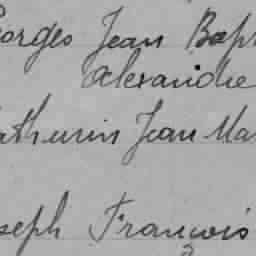 eorges Jean Bap
Alexandre
athurin Jean Ma
seph François